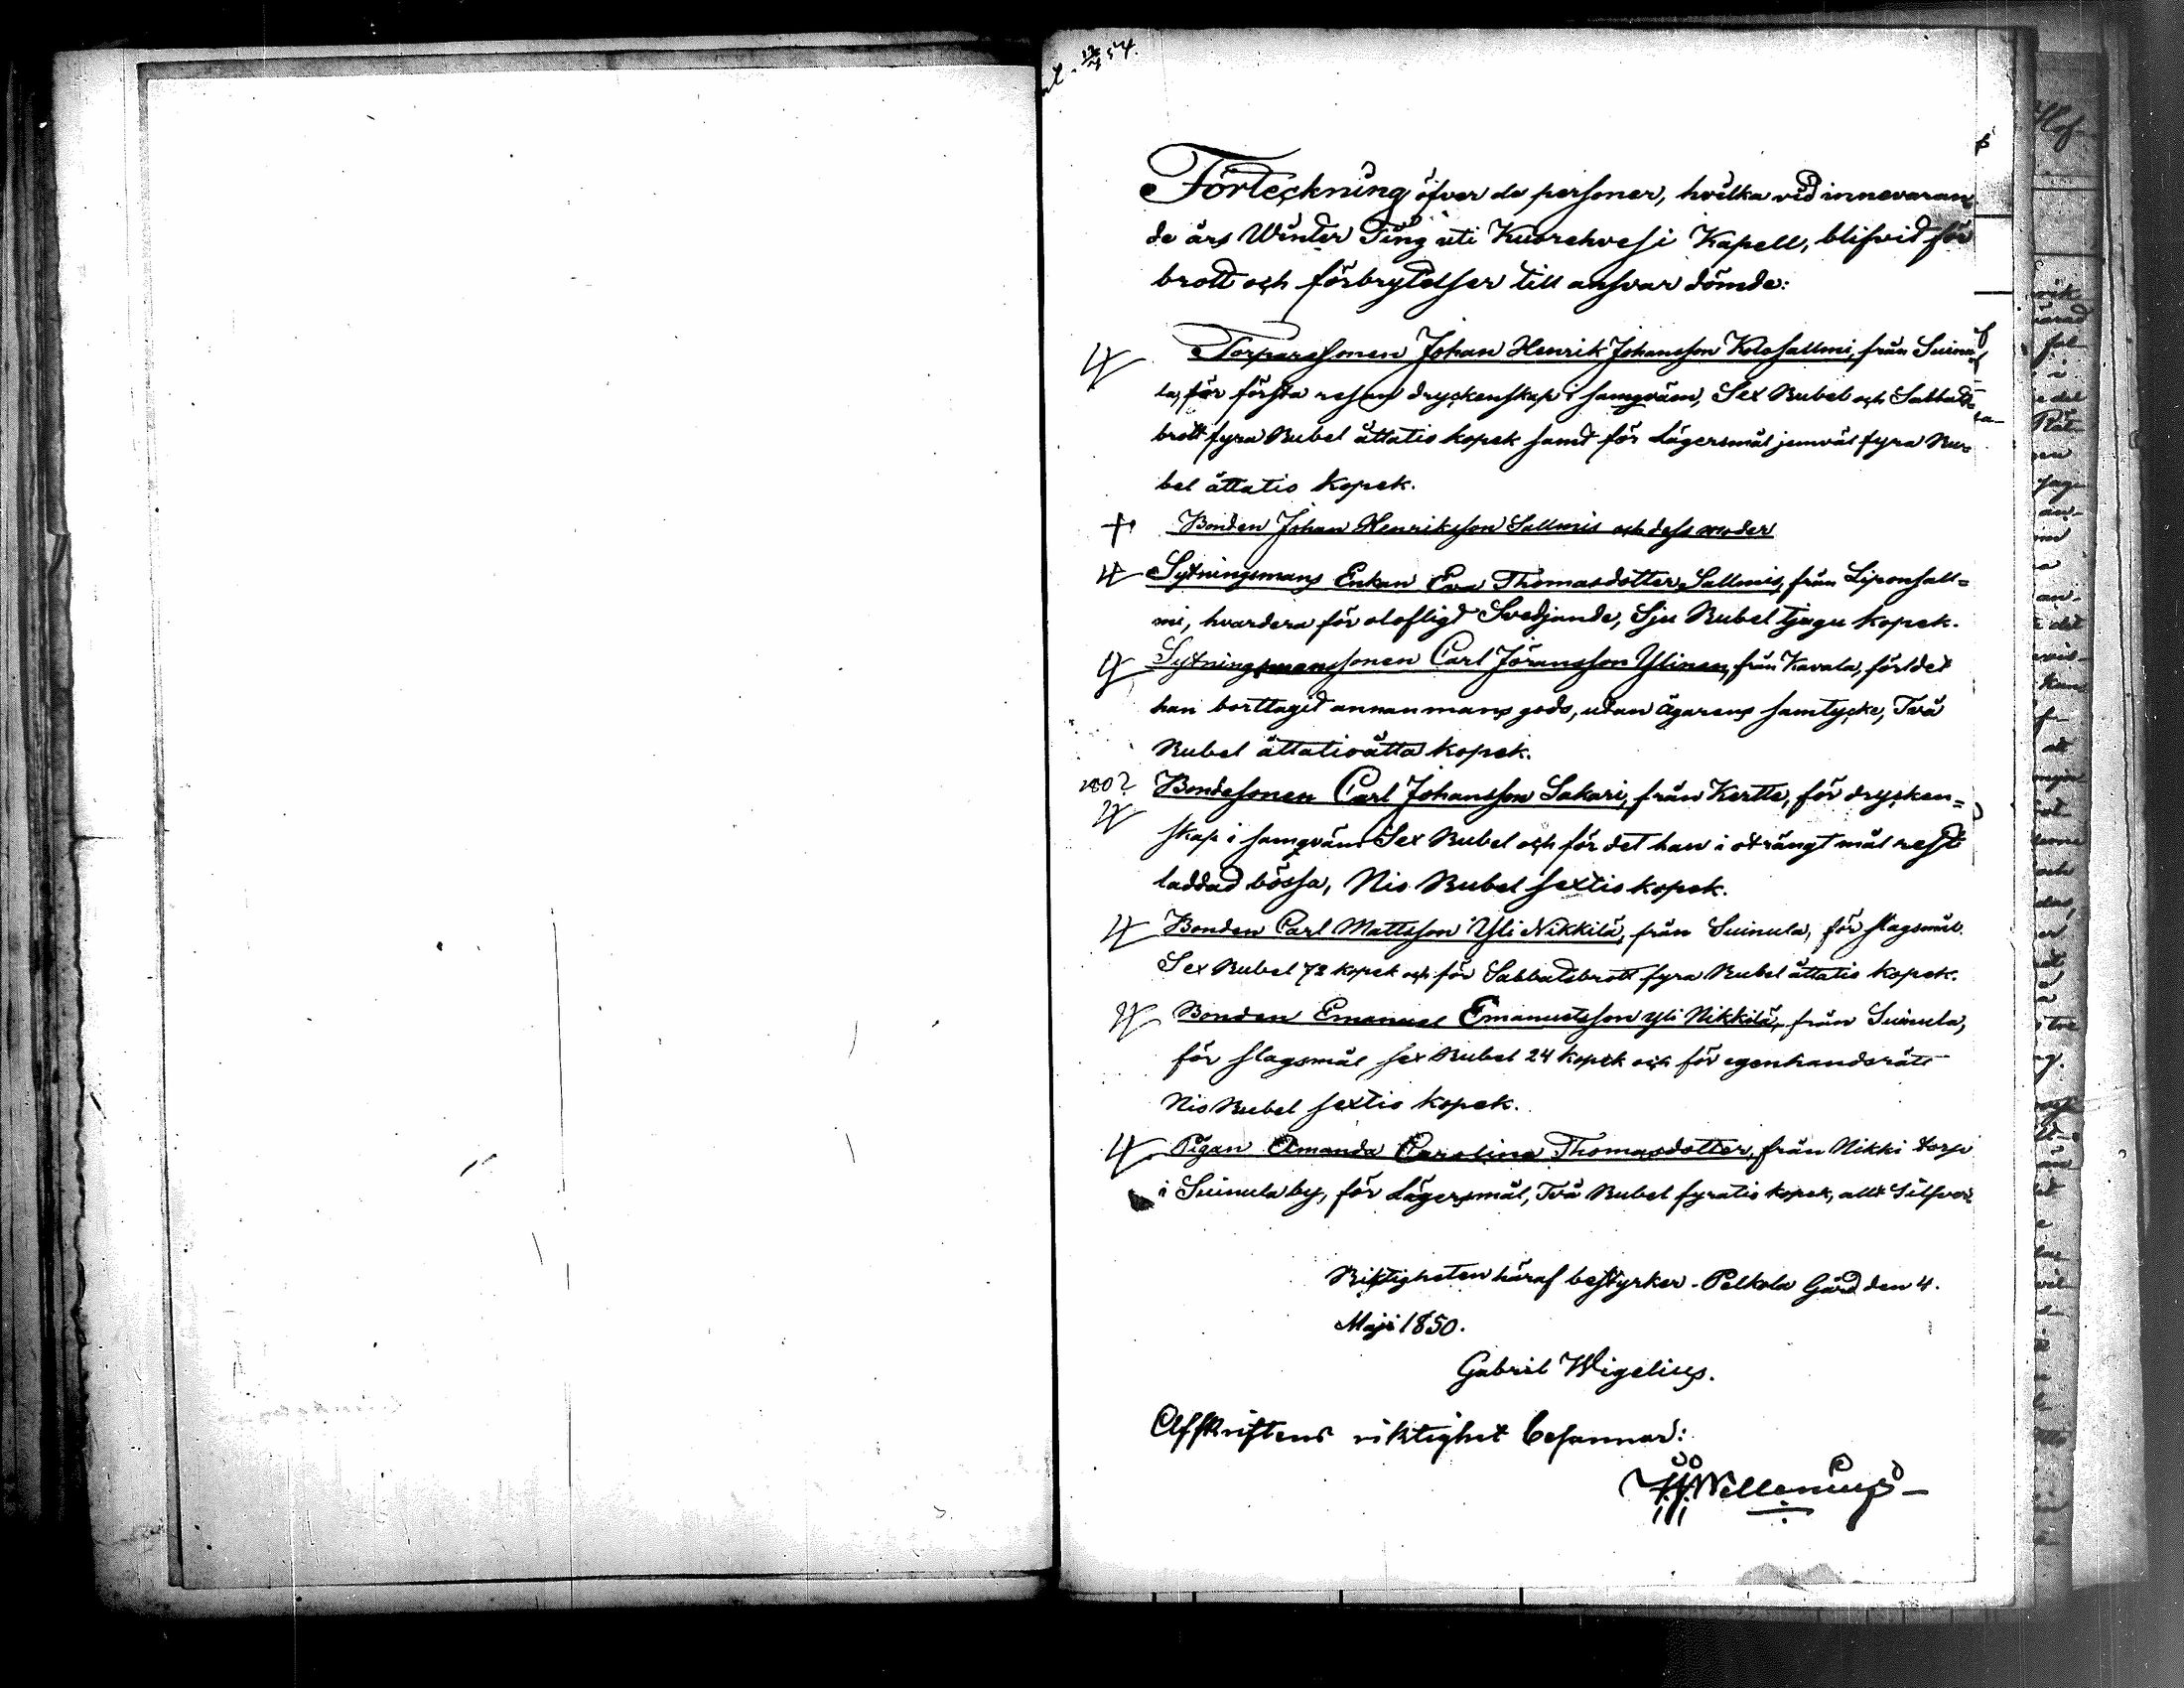 54.
Förteckning öfver de personer, hvilka vid innevaran
de års Winter Ting uti Kuorehvesi Kapell, blifvid för
brott och förbrytelser till ansvar dömde:
Torparesonen Johan Henrik Johansson Kolosallmi, från Suinu
la, för första resan dryckenskap i samqväm, Sex Rubel och Sabbats
brott fyra Rubel åttatio kopek samt för Lägersmål jemväl fyra Ru=
bel åttatio kopek.
Bonden Johan Henriksson Sallmis och dess moder
Sytningsmans Enkan Eva Thomasdotter Sallmis, från Liponsall=
mi, hvardera för olofligt Svedjande, Sju Rubel tjugu kopek.
Sytningsmanssonen Carl Jöransson Ylinen, från Kavala, för det
han borttagit annan mans gods, utan ägarens samtycke, Två
Rubel åttatioåtta kopek.
Bondesonen Carl Johansson Sakari, från Kertte, för drycken=
skap i samqväm Sex Rubel och för det han i oträngt mål rest
laddad bössa, Nio Rubel sextio kopek.
Bonden Carl Mattsson Yli Nikkilä, från Suinula, för slagsmål
Sex Rubel 72 kopek och för Sabbatsbrott fyra Rubel åttatio kopek.
Bonden Emanuel Emanuelsson Yli Nikkilä, från Suinula,
för slagsmål sex Rubel 24 kopek och för egenhandsrätt
Nio Rubel sextio kopek.
Pigan Amanda Carolina Thomasdotter, från Nikki torp
i Suinula by, för Lägersmål, Två Rubel fyratio kopek, allt Silfver
Riktigheten häraf bestyrker. Pelkola Gård den 4.
Maji 1850.
Gabriel Wigelius.
Afskriftens riktighet besannar:
Wellenius